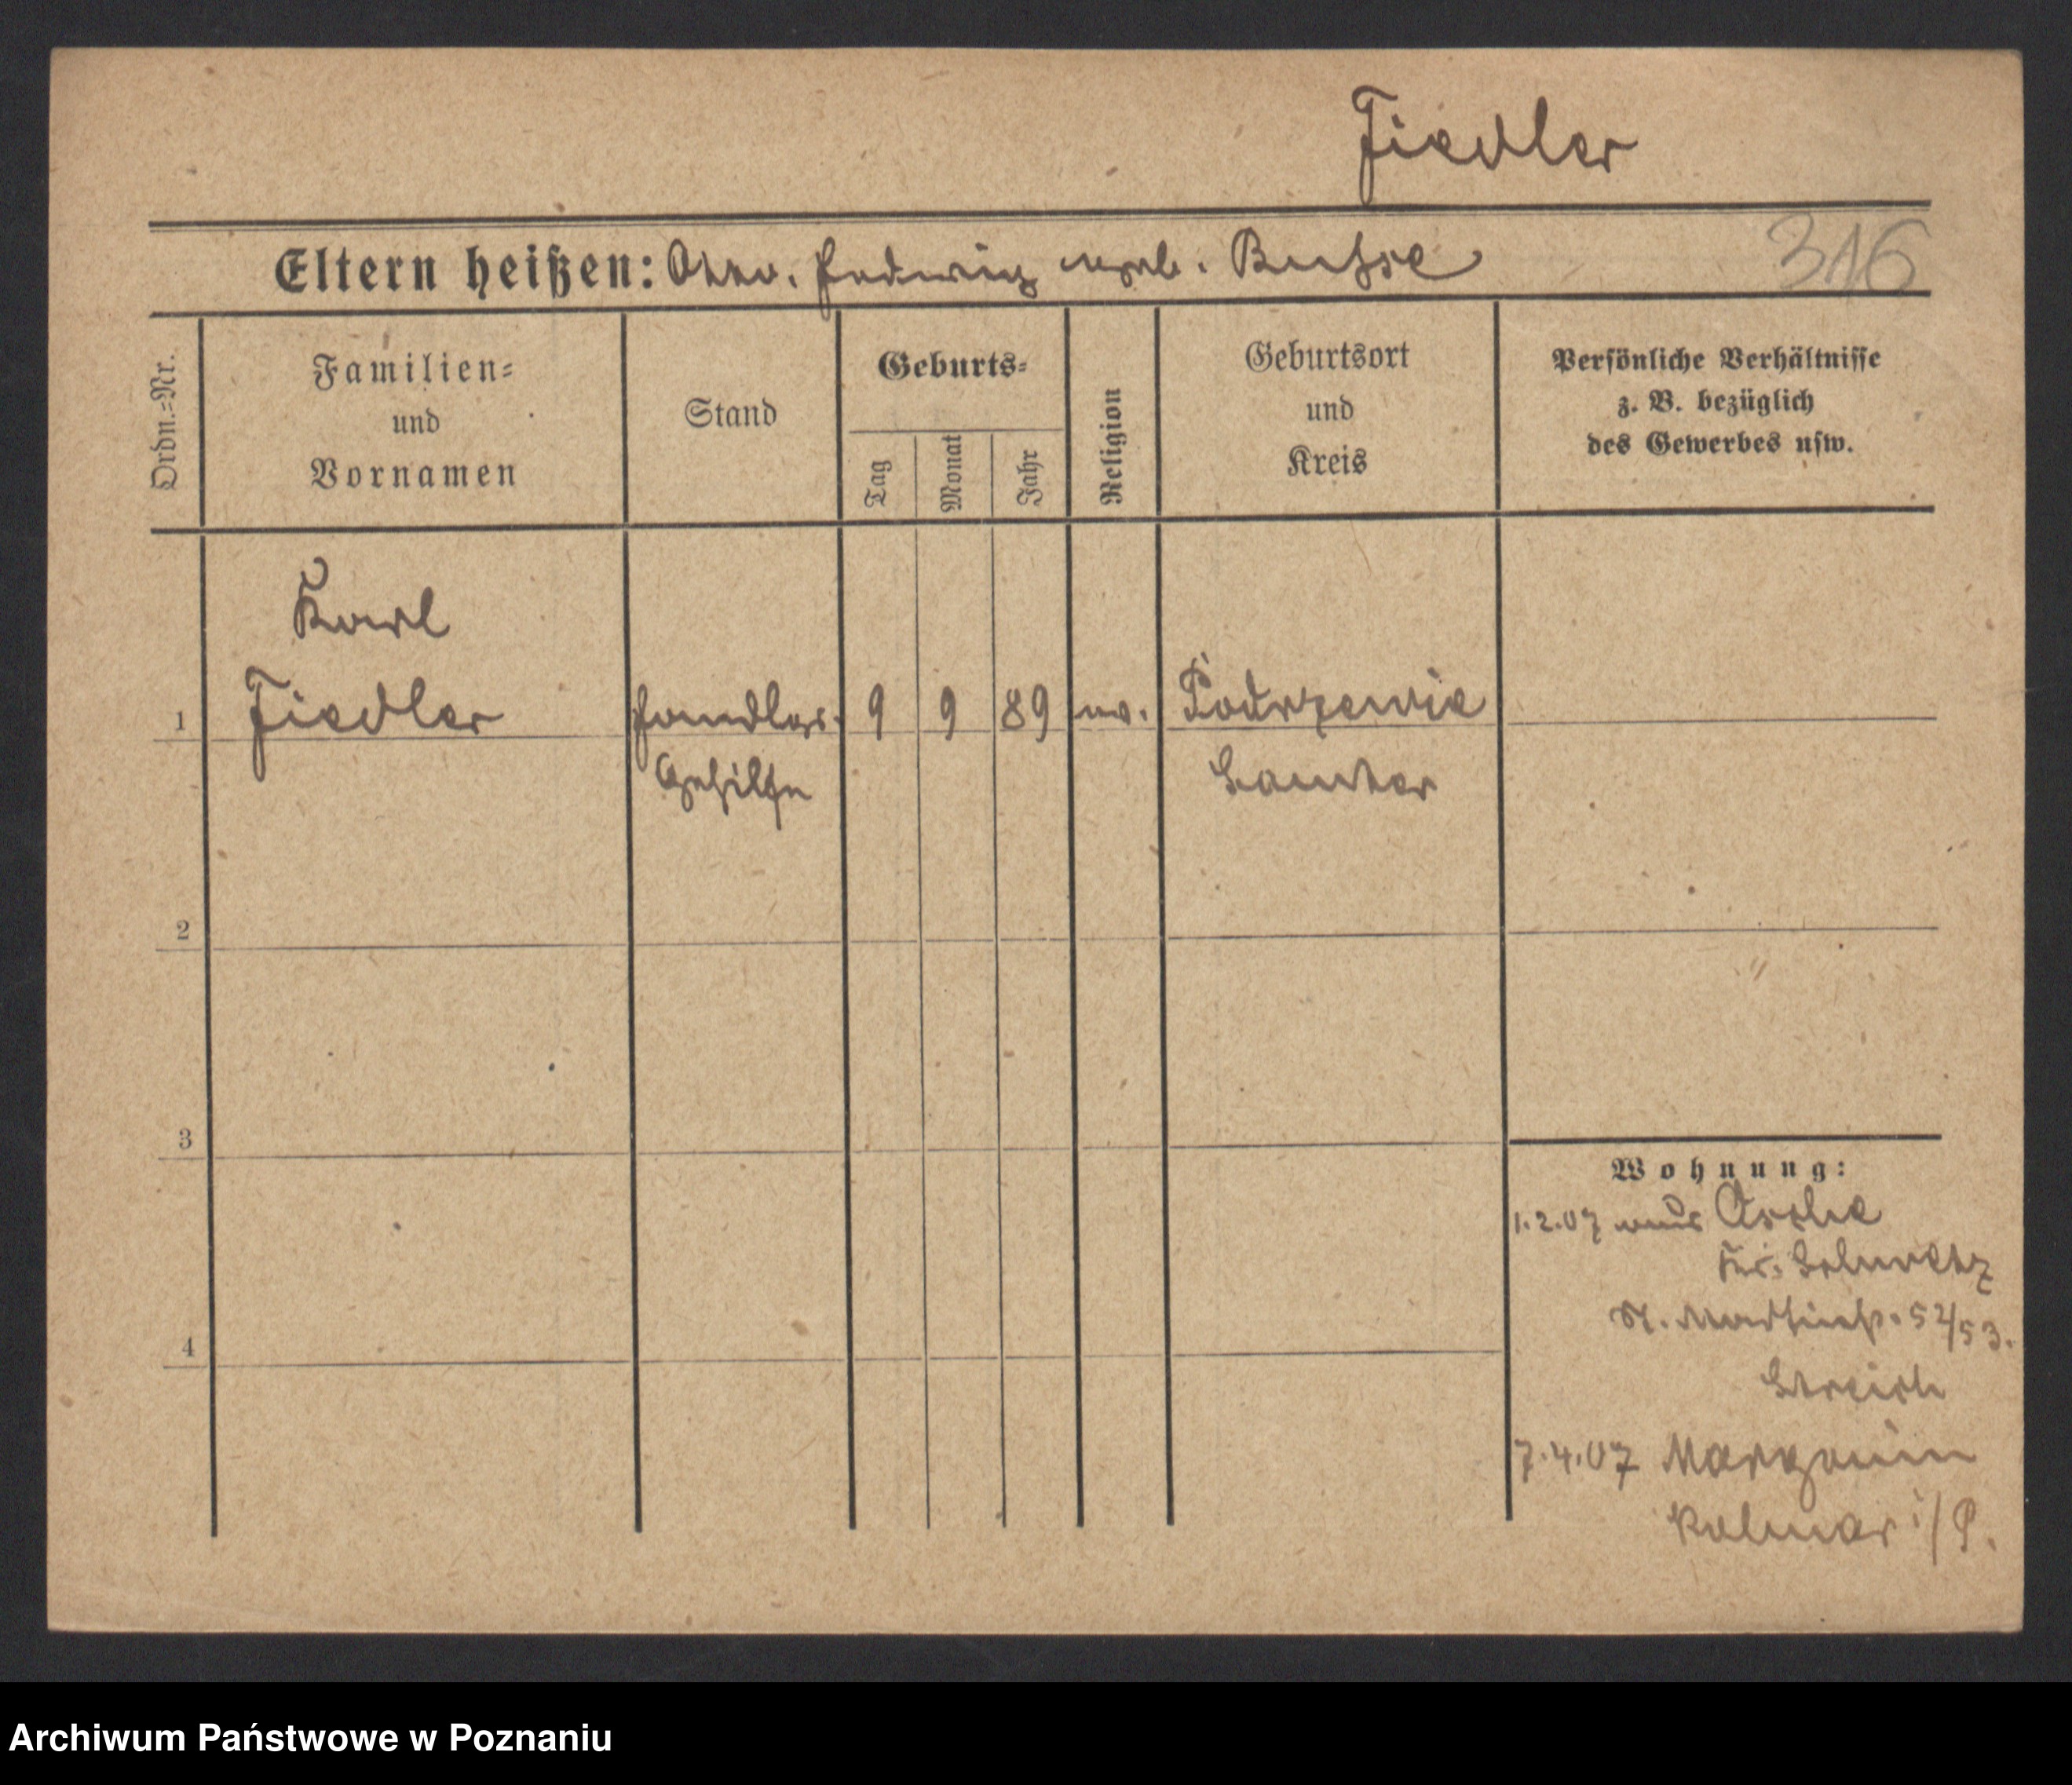 Fiedler
316
Eltern heißen: Otto. Hedwig geb. Busse
Ordn.=Nr.
Familien=
und
Vornamen
Stand
Geburts=
Tag
Monat
Jahr
Religion
Geburtsort
und
Kreis
Persönliche Verhältnisse
z. B. bezüglich
des Gewerbes usw.
Karl
1 Fiedler Handlgs. 9 9 89 ev. Podrzewie
Gehilfe Samter
2
3
4
Wohnung:
1.2.07 aus Osche
Kr. Schwetz
St. Martinstr. 52/53.
Streich
7.4.07 Margonin
Kolmar i/P.
Archiwum Państwowe w Poznaniu